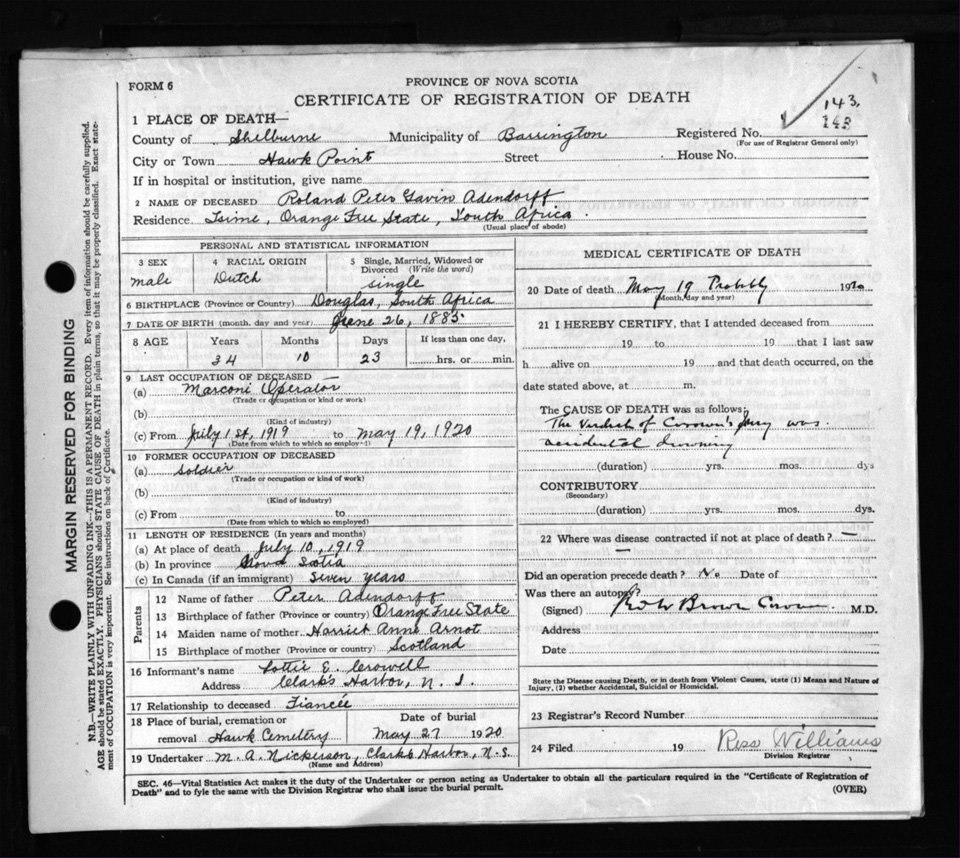 PROVINCE OF NOVA SCOTIA
FORM 6
CERTIFICATE OF REGISTRATION OF DEATH
143.
143
1 PLACE OF DEATH—
County of Shelburne Municipality of Barrington Registered No.
(For use of Registrar General only)
City or Town Hawk Point Street House No.
If in hospital or institution, give name
2 NAME OF DECEASED Roland Peter Gavin Adendorff
Residence Orange Free State, South Africa.
(Usual place of abode)
PERSONAL AND STATISTICAL INFORMATION
3 SEX male
4 RACIAL ORIGIN Dutch
5 Single, Married, Widowed or Divorced (Write the word) single
6 BIRTHPLACE (Province or Country) Douglas, South Africa
7 DATE OF BIRTH (month, day and year) June 26, 1885
8 AGE Years Months Days If less than one day,
34 10 23 hrs. or min.
9 LAST OCCUPATION OF DECEASED —
(a) Marconi Operator
(Trade or occupation or kind of work)
(b)
(Kind of industry)
(c) From July 1st, 1919 to May 19, 1920
(Date from which to which so employed)
10 FORMER OCCUPATION OF DECEASED
(a) Soldier
(Trade or occupation or kind of work)
(b)
(Kind of industry)
(c) From to
(Date from which to which so employed)
11 LENGTH OF RESIDENCE (In years and months)
(a) At place of death July 10, 1919
(b) In province Nova Scotia
(c) In Canada (if an immigrant) Seven years
Parents
12 Name of father Peter Adendorff
13 Birthplace of father (Province or country) Orange Free State
14 Maiden name of mother Harriet Anne Arnot
15 Birthplace of mother (Province or country) Scotland
16 Informant's name Lottie E. Crowell
Address Clarks Harbor, N. S.
17 Relationship to deceased Fiancée
18 Place of burial, cremation or removal Hawk Cemetery
Date of burial May 27 1920
19 Undertaker M. A. Nickerson, Clarks Harbor, N.S.
(Name and Address)
MEDICAL CERTIFICATE OF DEATH
20 Date of death May 19 Probably 1920
(Month, day and year)
21 I HEREBY CERTIFY, that I attended deceased from
19 to 19 that I last saw
h alive on 19 and that death occurred, on the
date stated above, at m.
The CAUSE OF DEATH was as follows:
The Verdict of Coroner's Jury was
accidental drowning
(duration) yrs. mos. dys
CONTRIBUTORY
(Secondary)
(duration) yrs. mos. dys.
22 Where was disease contracted if not at place of death? —
Did an operation precede death? No Date of
Was there an autopsy?
(Signed) Brown M.D.
Address
Date
State the Disease causing Death, or in death from Violent Causes, state (1) Means and Nature of
Injury, (2) whether Accidental, Suicidal or Homicidal.
23 Registrar's Record Number
24 Filed 19 Ross Williams
Division Registrar
SEC. 46—Vital Statistics Act makes it the duty of the Undertaker or person acting as Undertaker to obtain all the particulars required in the "Certificate of Registration of
Death" and to fyle the same with the Division Registrar who shall issue the burial permit.
(OVER)
MARGIN RESERVED FOR BINDING
N.B.—WRITE PLAINLY WITH UNFADING INK—THIS IS A PERMANENT RECORD. Every item of information should be carefully supplied.
AGE should be stated EXACTLY. PHYSICIANS should STATE CAUSE OF DEATH in plain terms, so that it may be properly classified. Exact state-
ment of OCCUPATION is very important. See instructions on back of Certificate.